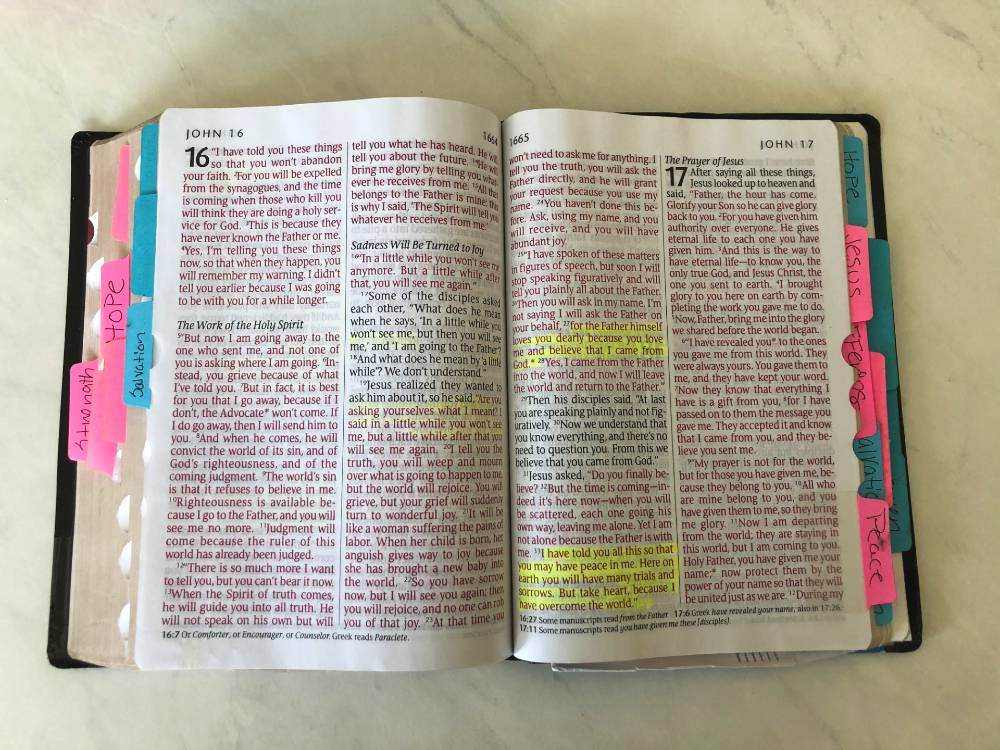 JOHN 16
1664
16 "I have told you these things
so that you won't abandon
your faith. ²For you will be expelled
from the synagogues, and the time
is coming when those who kill you
will think they are doing a holy ser-
vice for God. ³This is because they
have never known the Father or me.
⁴Yes, I'm telling you these things
now, so that when they happen, you
will remember my warning. I didn't
tell you earlier because I was going
to be with you for a while longer.
The Work of the Holy Spirit
⁵"But now I am going away to the
one who sent me, and not one of
you is asking where I am going. ⁶In-
stead, you grieve because of what
I've told you. ⁷But in fact, it is best
for you that I go away, because if I
don't, the Advocate* won't come. If
I do go away, then I will send him to
you. ⁸And when he comes, he will
convict the world of its sin, and of
God's righteousness, and of the
coming judgment. ⁹The world's sin
is that it refuses to believe in me.
¹⁰Righteousness is available be-
cause I go to the Father, and you will
see me no more. ¹¹Judgment will
come because the ruler of this
world has already been judged.
¹²"There is so much more I want
to tell you, but you can't bear it now.
¹³When the Spirit of truth comes,
he will guide you into all truth. He
will not speak on his own but will
tell you what he has heard. He will
tell you about the future. ¹⁴He will
bring me glory by telling you what-
ever he receives from me. ¹⁵All that
belongs to the Father is mine; this
is why I said, 'The Spirit will tell you
whatever he receives from me.'
Sadness Will Be Turned to Joy
¹⁶"In a little while you won't see me
anymore. But a little while after
that, you will see me again."
¹⁷Some of the disciples asked
each other, "What does he mean
when he says, 'In a little while you
won't see me, but then you will see
me,' and 'I am going to the Father'?
¹⁸And what does he mean by 'a little
while'? We don't understand."
¹⁹Jesus realized they wanted to
ask him about it, so he said, "Are you
asking yourselves what I meant? I
said in a little while you won't see
me, but a little while after that you
will see me again. ²⁰I tell you the
truth, you will weep and mourn
over what is going to happen to me,
but the world will rejoice. You will
grieve, but your grief will suddenly
turn to wonderful joy. ²¹It will be
like a woman suffering the pains of
labor. When her child is born, her
anguish gives way to joy because
she has brought a new baby into
the world. ²²So you have sorrow
now, but I will see you again; then
you will rejoice, and no one can rob
you of that joy. ²³At that time you
16:7 Or Comforter, or Encourager, or Counselor. Greek reads Paraclete.
1665
JOHN 17
won't need to ask me for anything. I
tell you the truth, you will ask the
Father directly, and he will grant
your request because you use my
name. ²⁴You haven't done this be-
fore. Ask, using my name, and you
will receive, and you will have
abundant joy.
²⁵"I have spoken of these matters
in figures of speech, but soon I will
stop speaking figuratively and will
tell you plainly all about the Father.
²⁶Then you will ask in my name. I'm
not saying I will ask the Father on
your behalf, ²⁷for the Father himself
loves you dearly because you love
me and believe that I came from
God.* ²⁸Yes, I came from the Father
into the world, and now I will leave
the world and return to the Father."
²⁹Then his disciples said, "At last
you are speaking plainly and not fig-
uratively. ³⁰Now we understand that
you know everything, and there's no
need to question you. From this we
believe that you came from God."
³¹Jesus asked, "Do you finally be-
lieve? ³²But the time is coming—in-
deed it's here now—when you will
be scattered, each one going his
own way, leaving me alone. Yet I am
not alone because the Father is with
me. ³³I have told you all this so that
you may have peace in me. Here on
earth you will have many trials and
sorrows. But take heart, because I
have overcome the world."
The Prayer of Jesus
17 After saying all these things,
Jesus looked up to heaven and
said, "Father, the hour has come.
Glorify your Son so he can give glory
back to you. ²For you have given him
authority over everyone. He gives
eternal life to each one you have
given him. ³And this is the way to
have eternal life—to know you, the
only true God, and Jesus Christ, the
one you sent to earth. ⁴I brought
glory to you here on earth by com-
pleting the work you gave me to do.
⁵Now, Father, bring me into the glory
we shared before the world began.
⁶"I have revealed you* to the ones
you gave me from this world. They
were always yours. You gave them to
me, and they have kept your word.
⁷Now they know that everything I
have is a gift from you, ⁸for I have
passed on to them the message you
gave me. They accepted it and know
that I came from you, and they be-
lieve you sent me.
⁹"My prayer is not for the world,
but for those you have given me, be-
cause they belong to you. ¹⁰All who
are mine belong to you, and you
have given them to me, so they bring
me glory. ¹¹Now I am departing
from the world; they are staying in
this world, but I am coming to you.
Holy Father, you have given me your
name;* now protect them by the
power of your name so that they will
be united just as we are. ¹²During my
16:27 Some manuscripts read from the Father. 17:6 Greek have revealed your name; also in 17:26.
17:11 Some manuscripts read you have given me these [disciples].
HOPE
Salvation
Strength
HOPE
Jesus
Peace